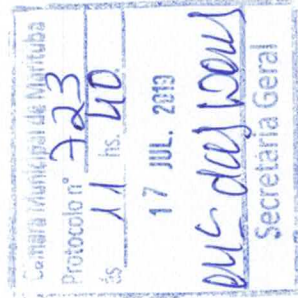 Câmara Municipal de Marituba
Protocolo nº 723
às 11 hs. 40
17 JUL. 2013
Secretaria Geral